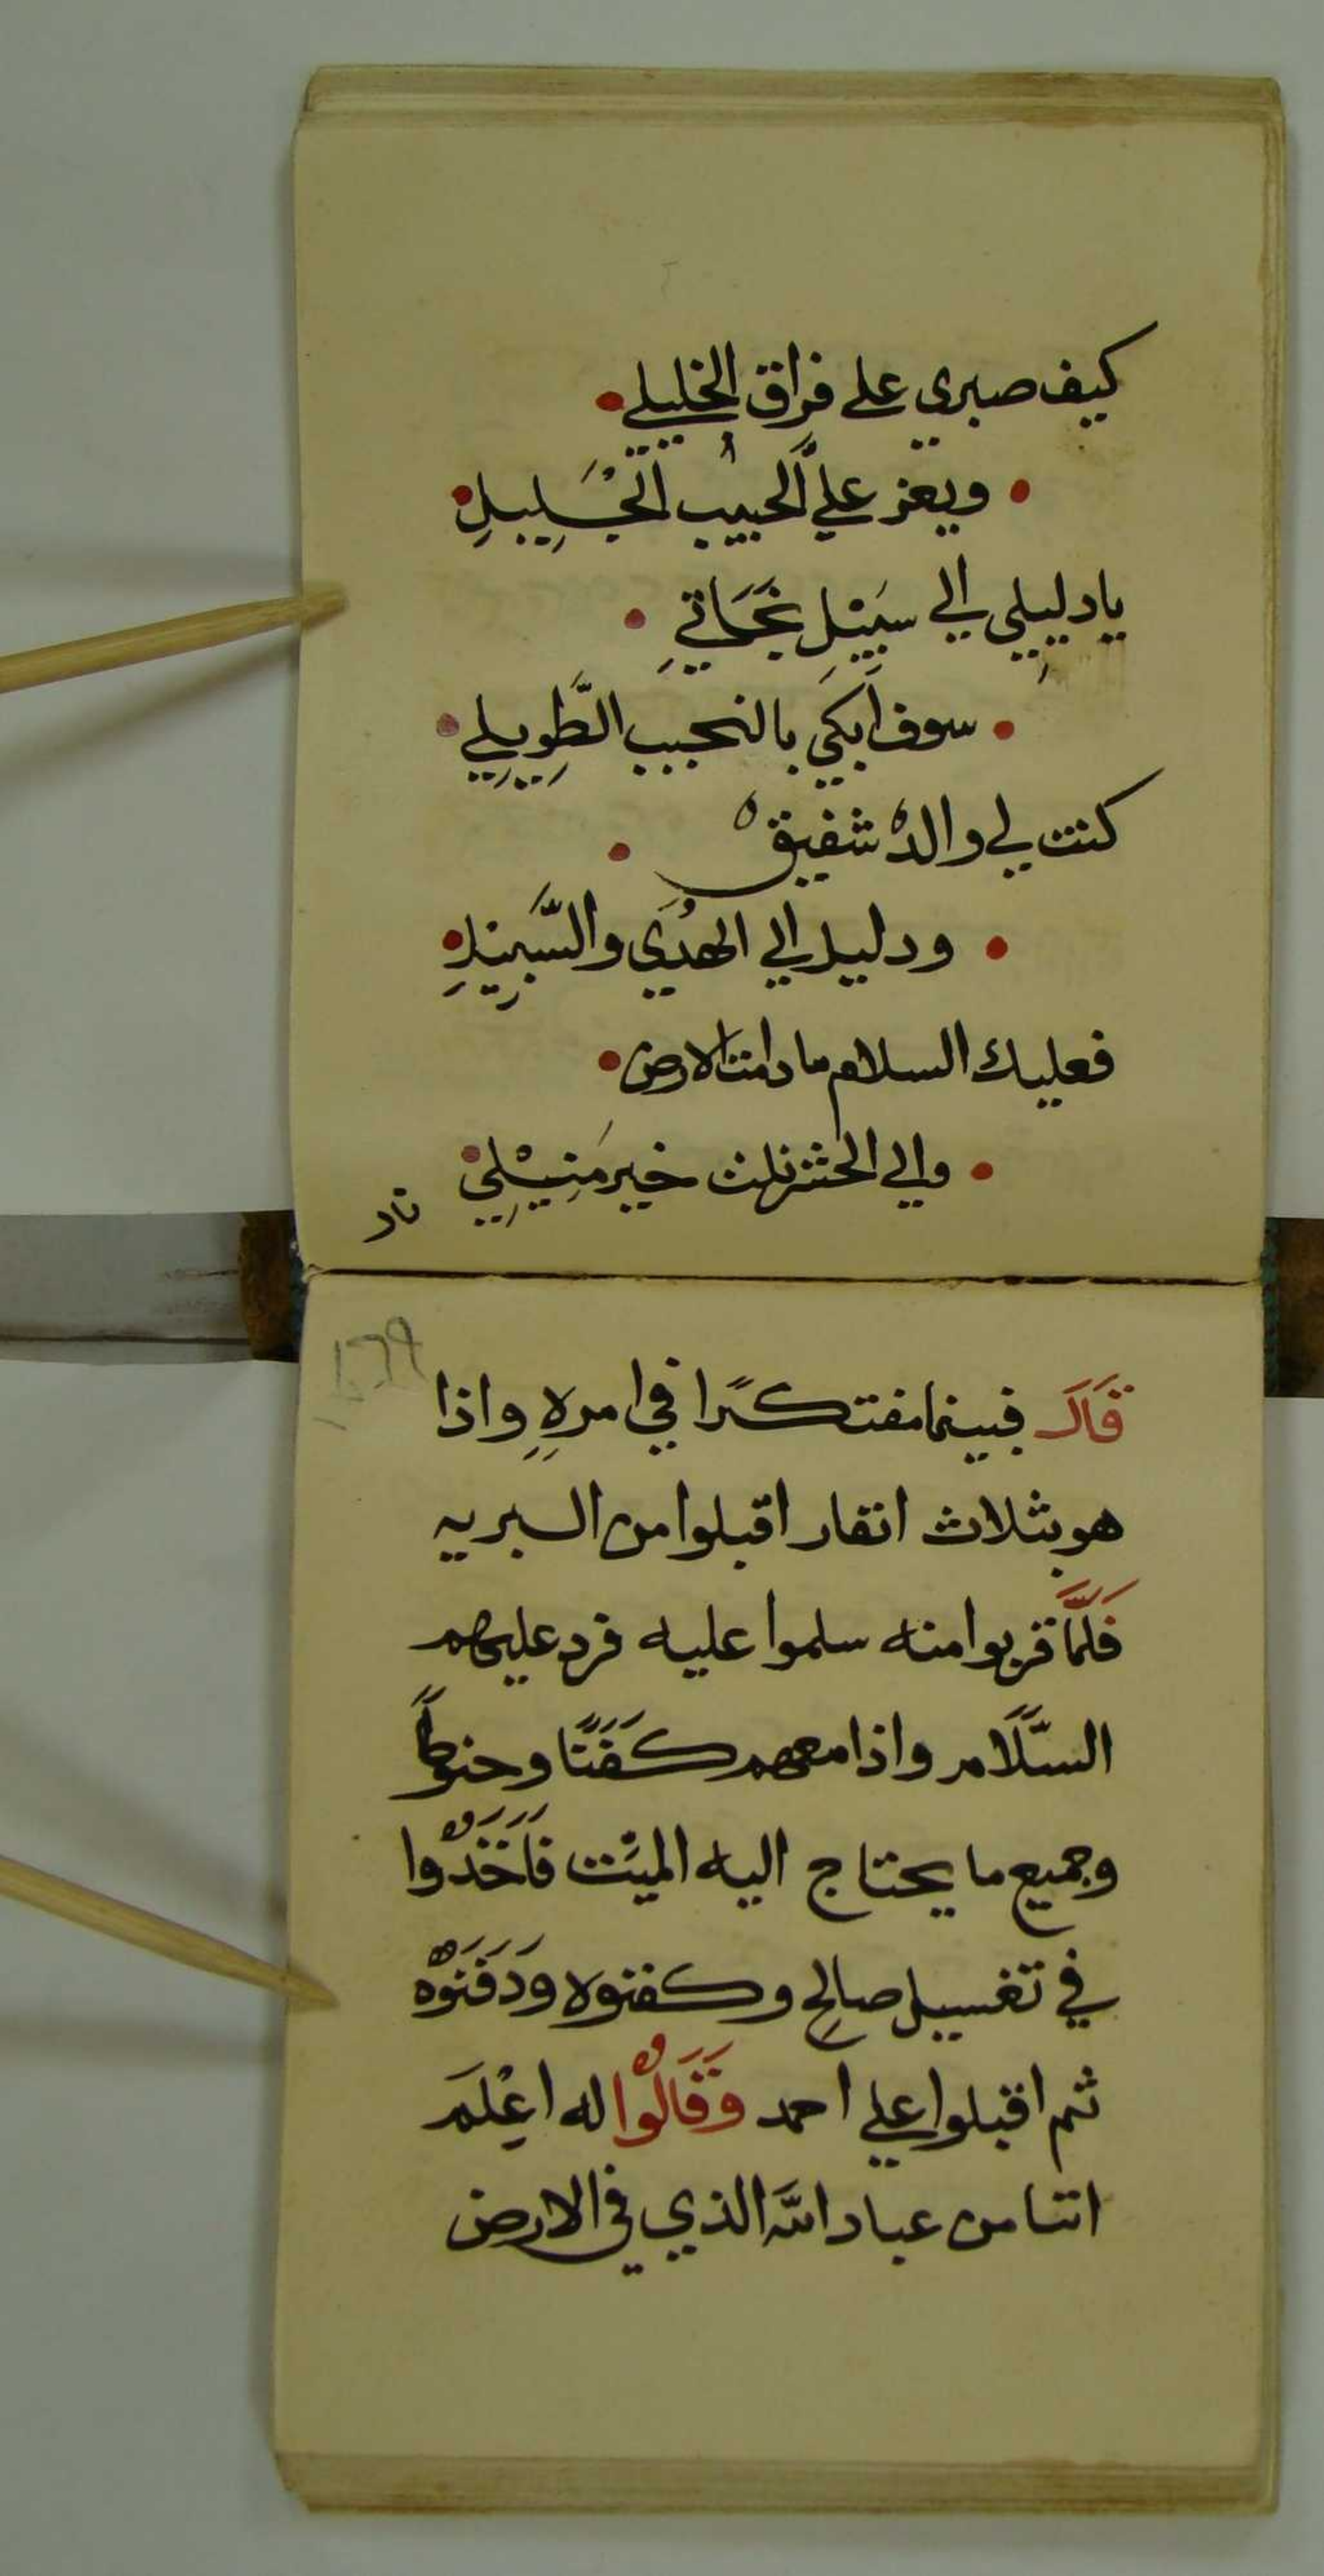 كيف صبري على فراق الخليلي
ويعز عليَّ الحبيب الجَلِيلِ
يا دليلي الي سَبيْل نَجَاتي
سوف اَبكيَ بالنحيب الطَّوِيلِي
كنت لي والدہْ شفيق
ودليل الي الهدُيَ والسَّبيْلِ
فعليك السلام ما دامت الارض
والي الحشر نلت خير مَنِيْلِي
قاد
١٣٩
قَالَ فبينما مفتكرًا في امرهِ واذا
هو بثلاث انفار اقبلوا من البريه
فَلَمَّا قربوا منه سلموا عليه فرد عليهم
السَّلَام واذا معهم كَفَنًا وحنوطًا
وجميع ما يحتاج اليه الميّت فَاَخَدُوا
في تغسيل صالحِ وكفنوه وَدَفَنَوْه
ثم اقبلوا علي احمد وَقَالُوا له اعْلَم
اننا من عباد اللَّه الذي في الارض